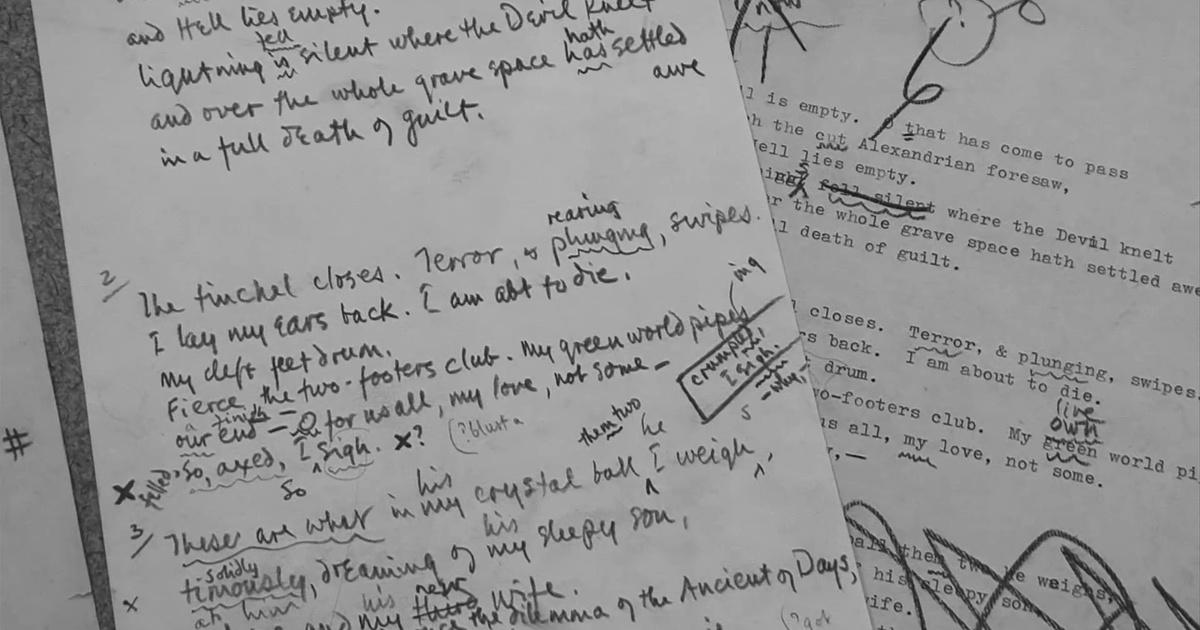 and Hell lies empty.
fell
lightning is silent where the Devil knelt
hath
and over the whole grave space has settled
awe
in a full death of guilt.
rearing
2/ The tinchel closes. Terror, & plunging, swipes.
I lay my ears back. I am abt to die.
My cleft feet drum.
Fierce, the two-footers club. My green world pipes
ing
a finish —
our end — for us all, my love, not some —
crumpled,
I sigh.
— why, —
s
x felled, So, axed, I sigh. x?
(?blust a
So
them two he
his
3/ These are what in my crystal ball I weigh,
solidly his
timously, dreaming of my sleepy son,
x at him his new
and my wife.
the dilemma of the Ancient of Days,
#
now
ll is empty. O that has come to pass
h the cut Alexandrian foresaw,
ell lies empty.
fell silent where the Devil knelt
r the whole grave space hath settled awe
l death of guilt.
closes. Terror, & plunging, swipes.
rs back. I am about to die.
drum.
live
own
wo-footers club. My green world pi
us all, my love, not some.
,—
all them two he weighs,
his sleepy son
ife.